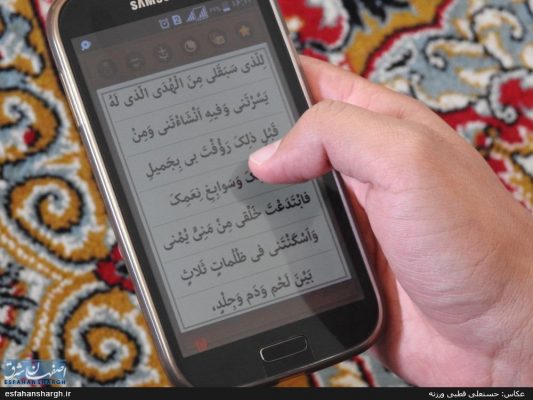 SAMSUNG
لِلَّذی سَبَقَلی مِنَ الْهُدَی الَّذی لَهُ
یَسَّرْتَنی وَفیهِ اَنْشَاْتَنی وَمِنْ
قَبْلِ ذلِکَ رَؤُفْتَ بی بِجَمیلِ
وَسَوابِغِ نِعَمِکَ
فَابْتَدَعْتَ خَلْقی مِنْ مَنِیٍّ یُمْنی
وَاَسْکَنْتَنی فی ظُلُماتٍ ثَلاثٍ
بَیْنَ لَحْمٍ وَدَمٍ وَجِلْدٍ،
اصفهان شرق
ESFAHANSHARGH
esfahanshargh.ir
عکاس: حسنعلی قطبی ورزنه